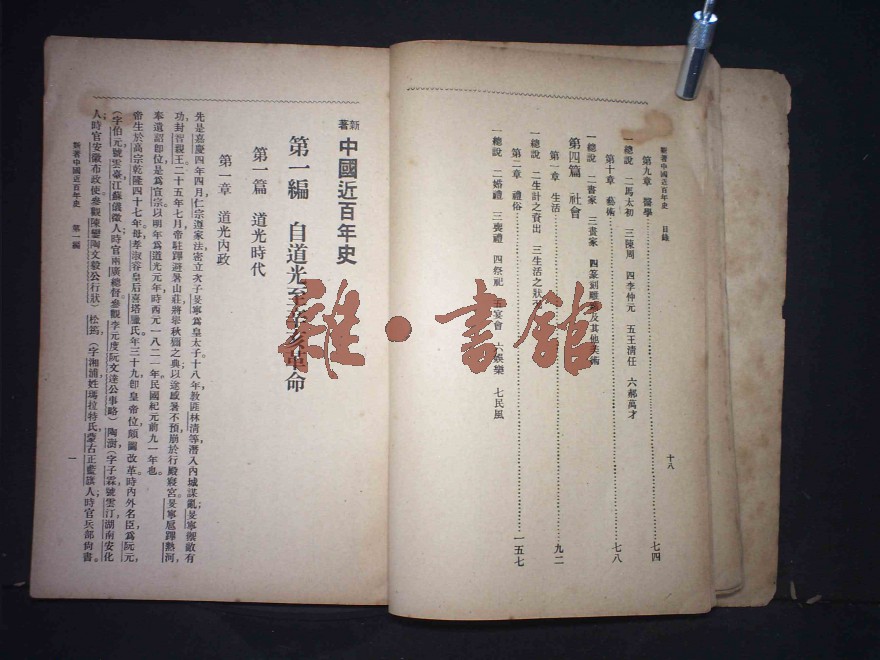 新著中國近百年史 目錄
十八
第九章 醫學 七四
一總說 二馬太初 三陳周 四李仲元 五王清任 六郝萬才
第十章 藝術 七八
一總說 二書家 三畫家 四篆刻雕 及其他美術
第四篇 社會
第一章 生活 九二
一總說 二生計之資出 三生活之狀
第二章 禮俗 一五七
一總說 二婚禮 三喪禮 四祭祀 五宴會 六娛樂 七民風
新著 中國近百年史
第一編 自道光至辛亥革命
第一篇 道光時代
第一章 道光內政
先是嘉慶四年四月仁宗遵家法密立次子旻寧爲皇太子十八年教匪林清等潛入內城謀亂旻寧禦敵有
功封智親王二十五年七月帝駐蹕避暑山莊將舉秋獮之典以途感暑不預崩於行殿寢宮旻寧扈蹕熱河
奉遺詔即位是爲宣宗以明年爲道光元年時西元一八二一年民國紀元前九一年也
帝生於高宗乾隆四十七年母孝淑睿皇后喜塔臘氏年三十九即皇帝位頗圖改革時內外名臣爲阮元
（字伯元號雲臺江蘇儀徵人時官兩廣總督參觀李元度阮文達公事略）陶澍（字子霖號雲汀湖南安化
人時官安徽布政使參觀陳鑾陶文毅公行狀）松筠（字湘浦姓瑪拉特氏蒙古正藍旗人時官兵部尚書。
新著中國近百年史 第一編
一
雜·書館